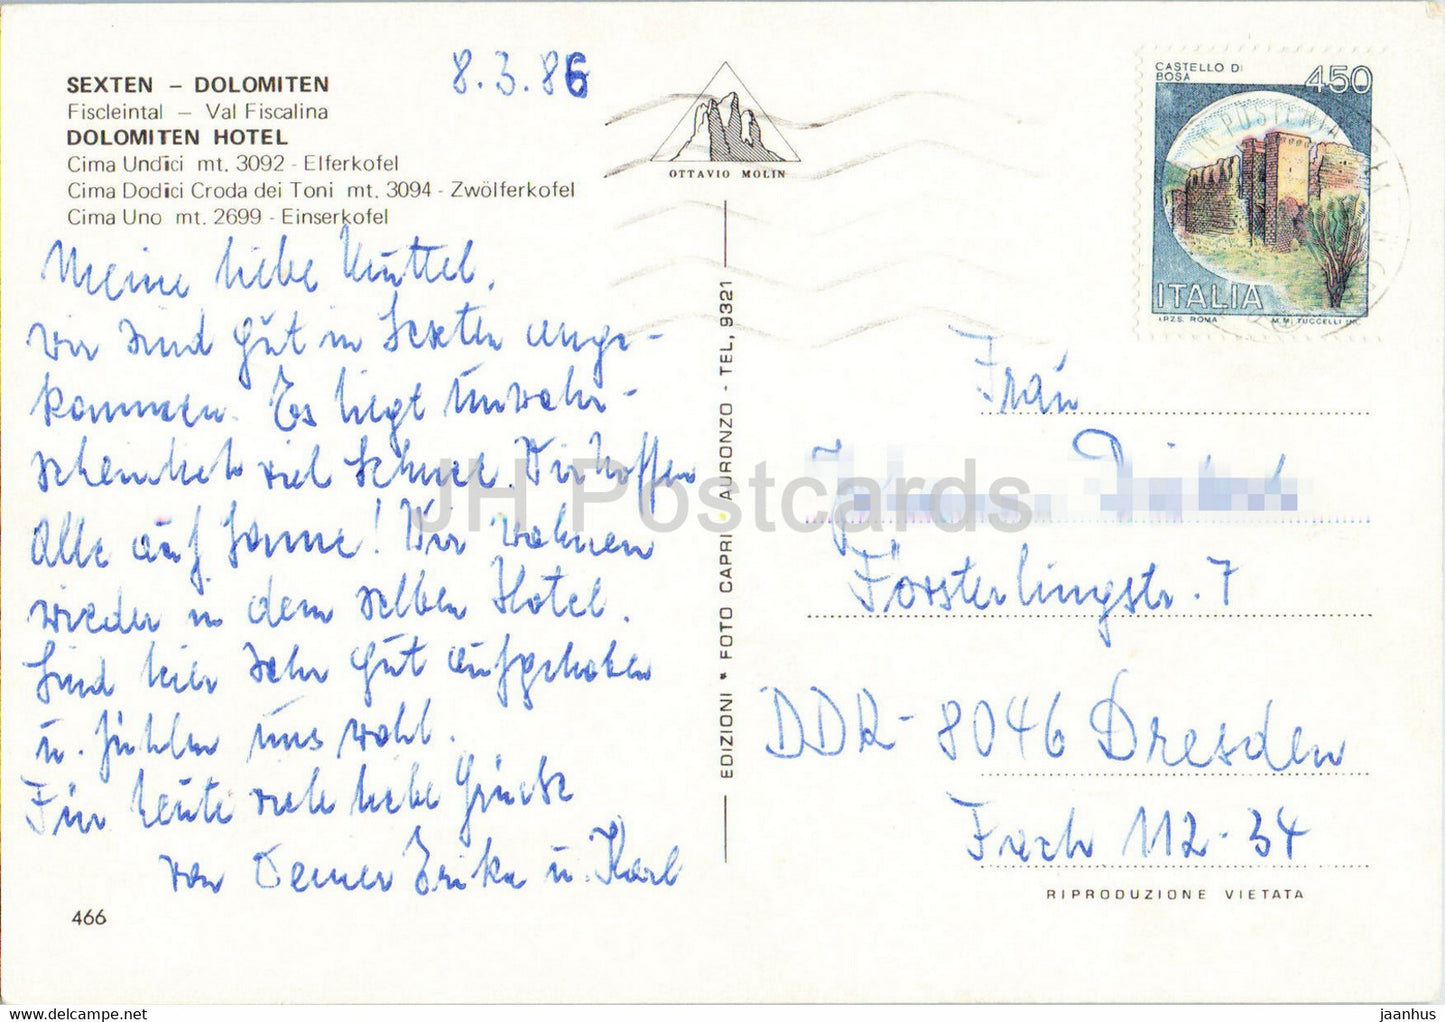 SEXTEN – DOLOMITEN
Fiscleintal – Val Fiscalina
DOLOMITEN HOTEL
Cima Undici mt. 3092 - Elferkofel
Cima Dodici Croda dei Toni mt. 3094 - Zwölferkofel
Cima Uno mt. 2699 - Einserkofel
8.3.86
Meine liebe Muttel,
wir sind gut in Sexten ange-
kommen. Es liegt unwahr-
scheinlich viel Schnee. Wir hoffen
alle auf Sonne! Wir wohnen
wieder in dem selben Hotel.
Sind hier sehr gut aufgehoben
u. fühlen uns wohl.
Für heute viele liebe Grüße
von Deiner Erika u. Karl
466
OTTAVIO MOLIN
EDIZIONI * FOTO CAPRI AURONZO - TEL, 9321
CASTELLO DI
BOSA
450
ITALIA
I.P.Z.S. ROMA
M.M. TUCCELLI INC.
Frau
Försterlingstr. 7
DDR-8046 Dresden
Fach 112-34
RIPRODUZIONE VIETATA
JH Postcards
jaanhus @ delcampe.net
hu-mercari.com